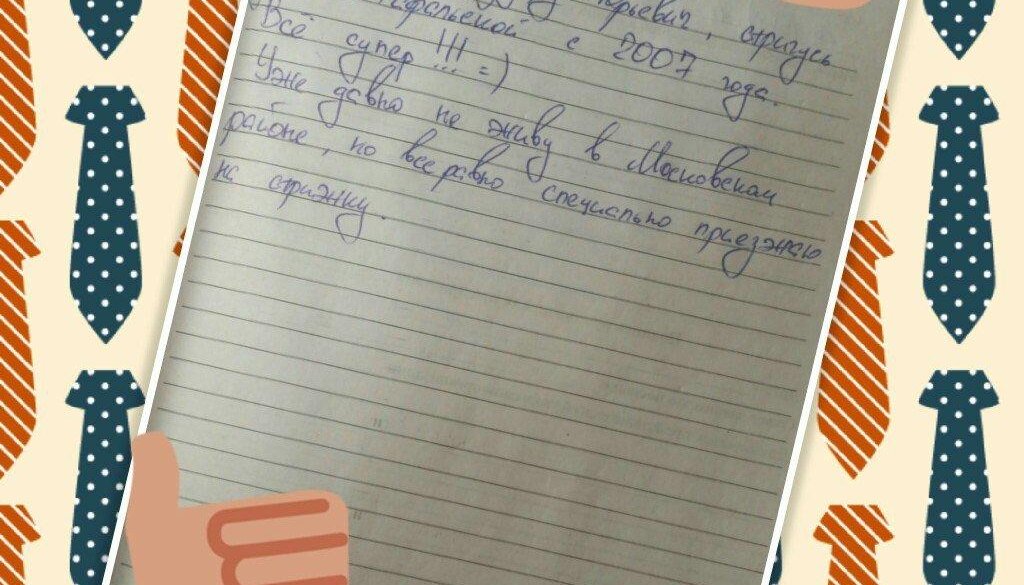 , стригусь
с 2007 года.
Всё супер!!! =)
Уже давно не живу в Московском
районе, но всеравно специально приезжаю
на стрижку.